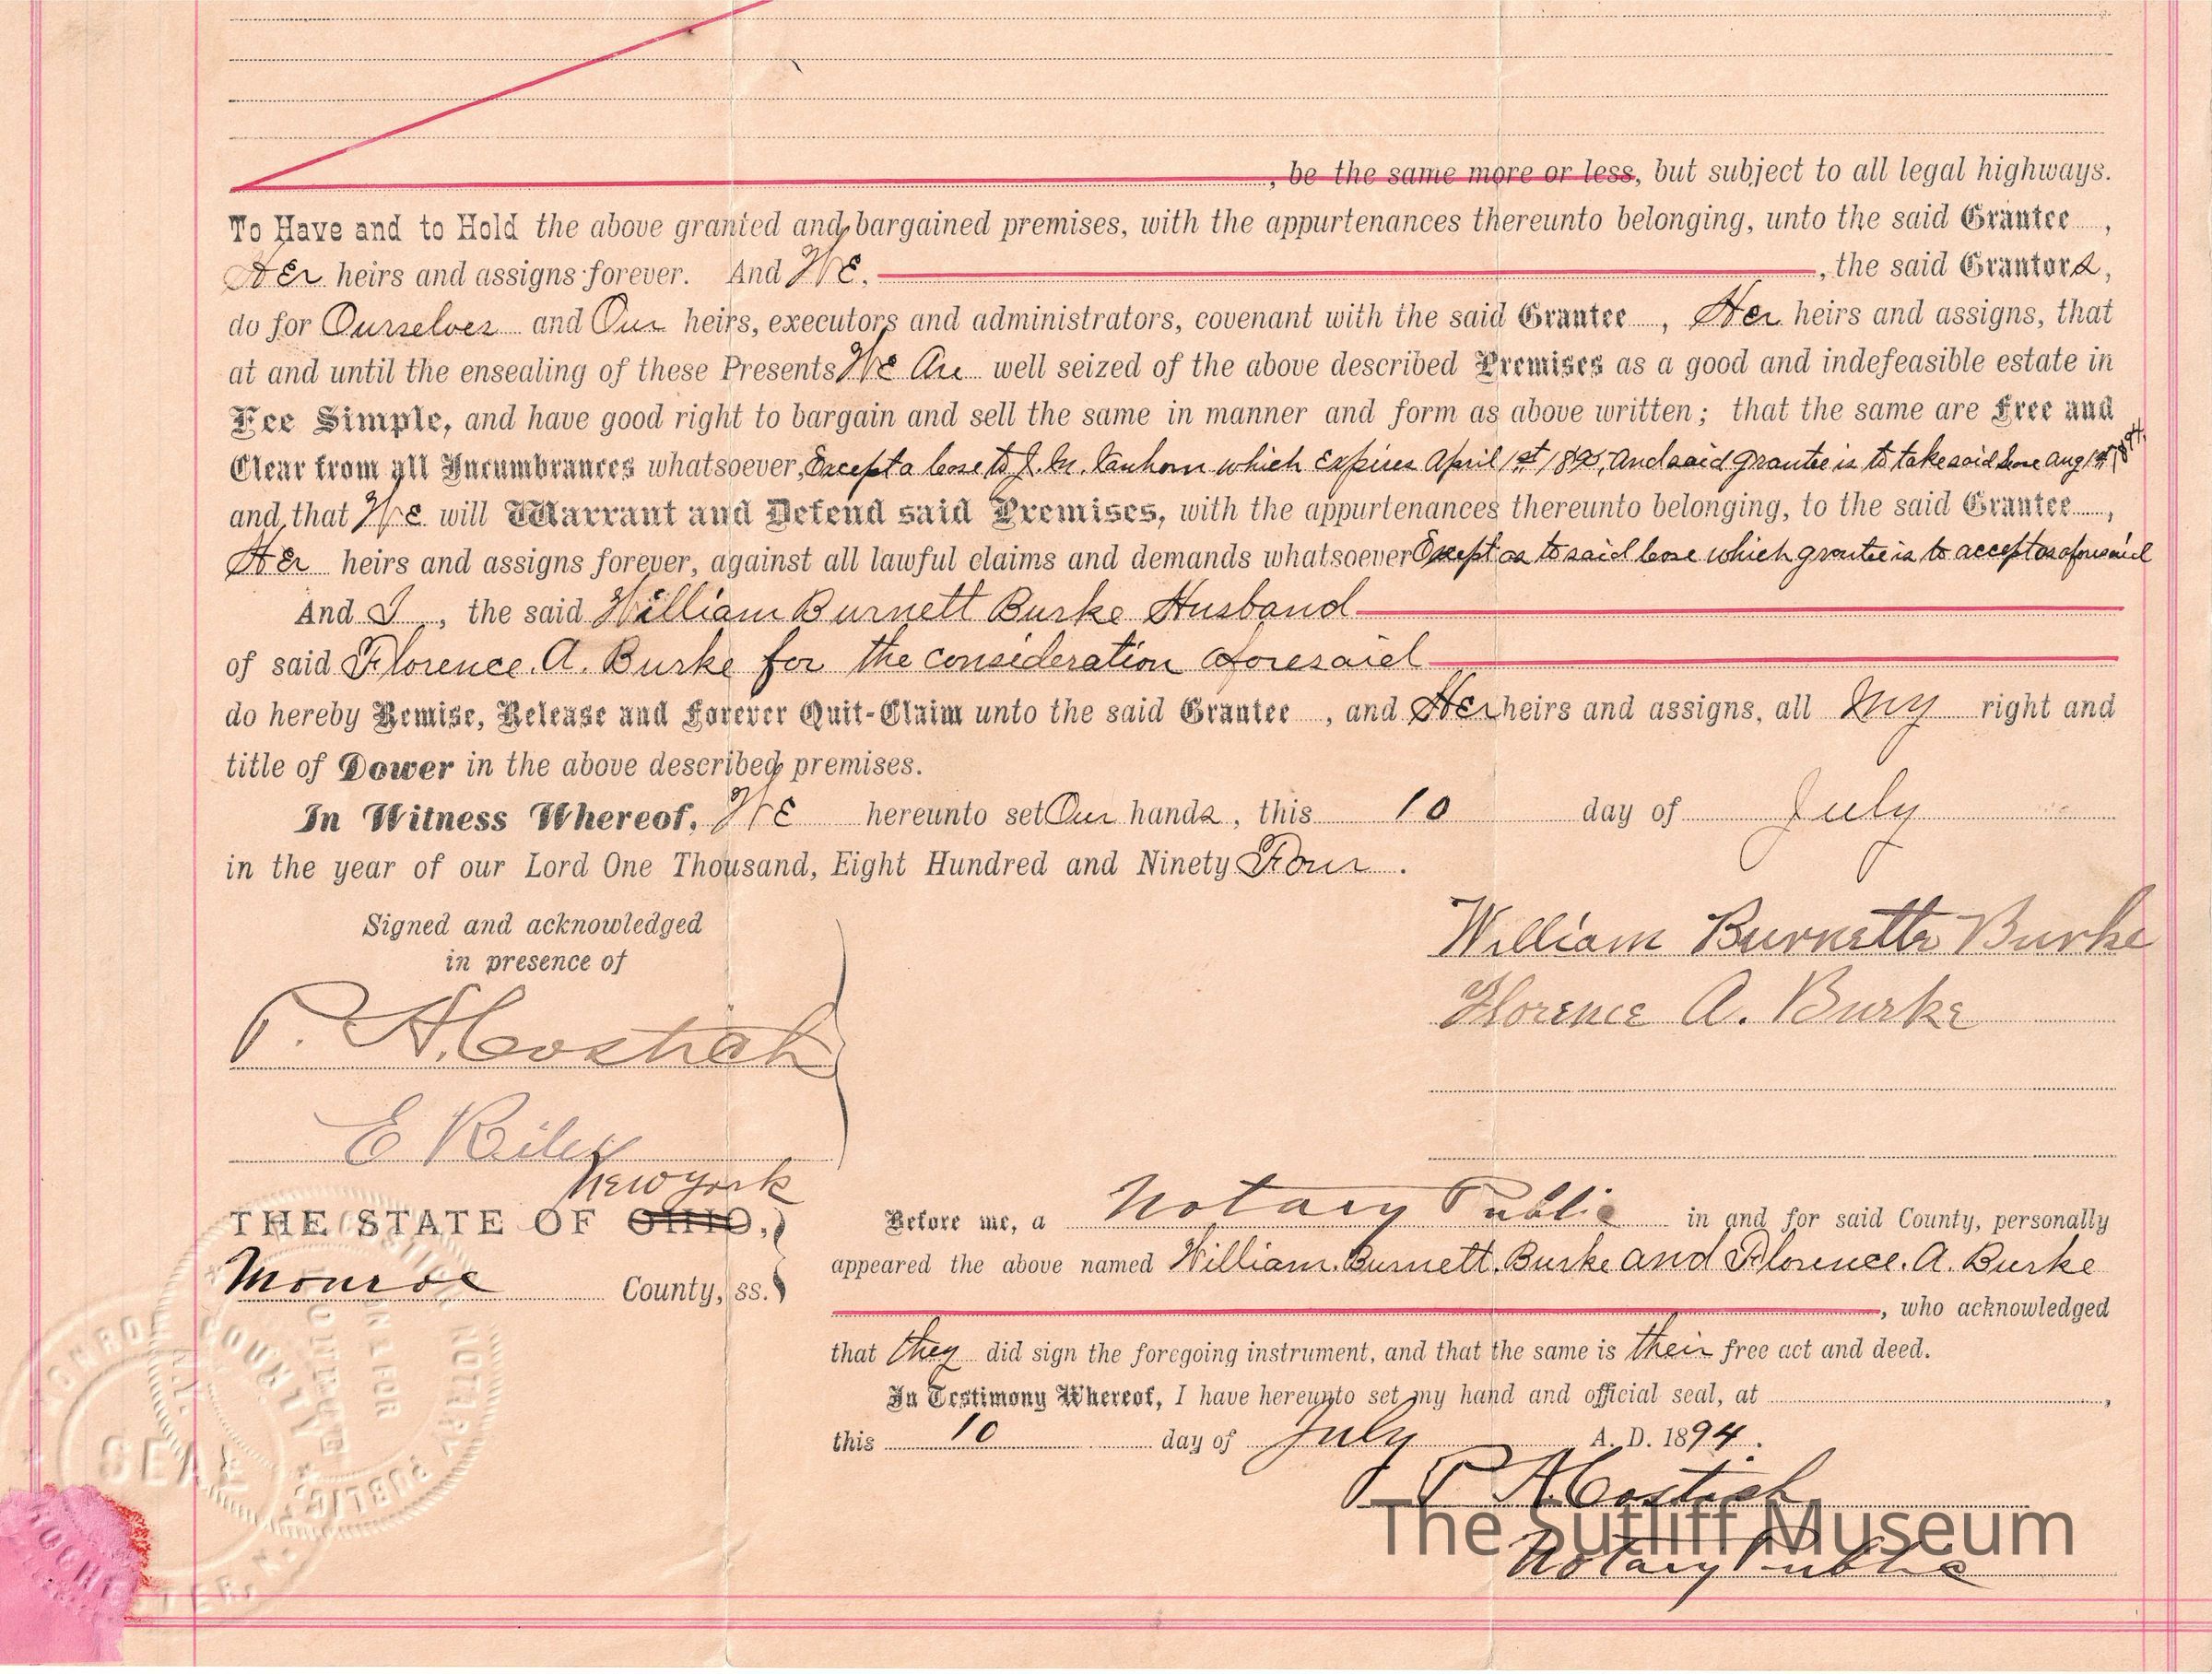 , be the same more or less, but subject to all legal highways.
To Have and to Hold the above granted and bargained premises, with the appurtenances thereunto belonging, unto the said Grantee ,
Her heirs and assigns forever. And We, , the said Grantors,
do for Ourselves and Our heirs, executors and administrators, covenant with the said Grantee , Her heirs and assigns, that
at and until the ensealing of these Presents We Are well seized of the above described Premises as a good and indefeasible estate in
Fee Simple, and have good right to bargain and sell the same in manner and form as above written; that the same are Free and
Clear from all Incumbrances whatsoever, Except a lease to J. M. Vanhorn which Expires April 1st 1895, And said grantee is to take said lease Aug 1st 1894.
and that We will Warrant and Defend said Premises, with the appurtenances thereunto belonging, to the said Grantee ,
Her heirs and assigns forever, against all lawful claims and demands whatsoever Except as to said lease which grantee is to accept as aforesaid
And I , the said William Burnett Burke Husband
of said Florence. A. Burke for the consideration aforesaid
do hereby Remise, Release and Forever Quit-Claim unto the said Grantee , and Her heirs and assigns, all My right and
title of Dower in the above described premises.
In Witness Whereof, We hereunto set Our hands, this 10 day of July
in the year of our Lord One Thousand, Eight Hundred and Ninety Four .
Signed and acknowledged
in presence of
William Burnette Burke
Florence A. Burke
P. H. Costich
E Riley
New York
THE STATE OF OHIO,
Monroe County, ss.
Before me, a Notary Public in and for said County, personally
appeared the above named William. Burnett. Burke and Florence. A. Burke
, who acknowledged
that they did sign the foregoing instrument, and that the same is their free act and deed.
In Testimony Whereof, I have hereunto set my hand and official seal, at ,
this 10 day of July A. D. 1894 .
P H Costich
Notary Public
The Sutliff Museum
MONROE COUNTY
NOTARY PUBLIC
IN & FOR
SEAL
ROCHESTER, N.